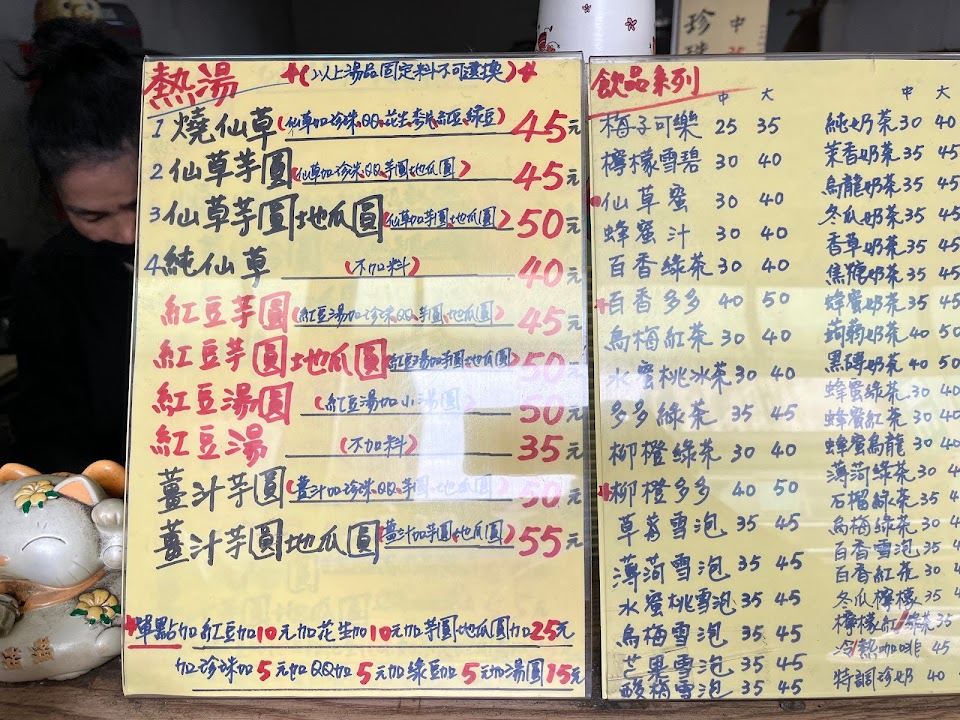 熱湯 (以上湯品固定料不可選換)
1 燒仙草(仙草加珍珠、QQ、花生、麥片、紅豆、綠豆) 45元
2 仙草芋圓(仙草加珍珠、QQ、芋圓、地瓜圓) 45元
3 仙草芋圓地瓜圓(仙草加芋圓、地瓜圓) 50元
4 純仙草 (不加料) 40元
紅豆芋圓(紅豆湯加珍珠、QQ、芋圓、地瓜圓) 45元
紅豆芋圓地瓜圓(紅豆湯加芋圓、地瓜圓) 50元
紅豆湯圓 (紅豆湯加小湯圓) 50元
紅豆湯 (不加料) 35元
薑汁芋圓(薑汁加珍珠、QQ、芋圓、地瓜圓) 50元
薑汁芋圓地瓜圓(薑汁加芋圓、地瓜圓) 55元
單點加紅豆加10元加花生加10元加芋圓地瓜圓加25元
加珍珠加5元加QQ加5元加綠豆加5元加湯圓15元
飲品系列
中 大
梅子可樂 25 35
檸檬雪碧 30 40
仙草蜜 30 40
蜂蜜汁 30 40
百香綠茶 30 40
百香多多 40 50
烏梅紅茶 30 40
水蜜桃冰茶 30 40
多多綠茶 35 45
柳橙綠茶 30 40
柳橙多多 40 50
草莓雪泡 35 45
薄荷雪泡 35 45
水蜜桃雪泡 35 45
烏梅雪泡 35 45
芒果雪泡 35 45
酸梅雪泡 35 45
中 大
純奶茶 30 40
茉香奶茶 35 45
烏龍奶茶 35 45
冬瓜奶茶 35 45
香草奶茶 35 45
焦糖奶茶 35 45
蜂蜜奶茶 35 45
蒟蒻奶茶 40 50
黑磚奶茶 40 50
蜂蜜綠茶 30 40
蜂蜜紅茶 30 40
蜂蜜烏龍 30 40
薄荷綠茶 30 4
石榴綠茶 35 4
烏梅綠茶 30 4
百香雪泡 35 4
百香紅茶 30 4
冬瓜檸檬 35 4
檸檬紅/綠茶 35
冷/熱咖啡 45
特調珍奶 40
珍珠
中